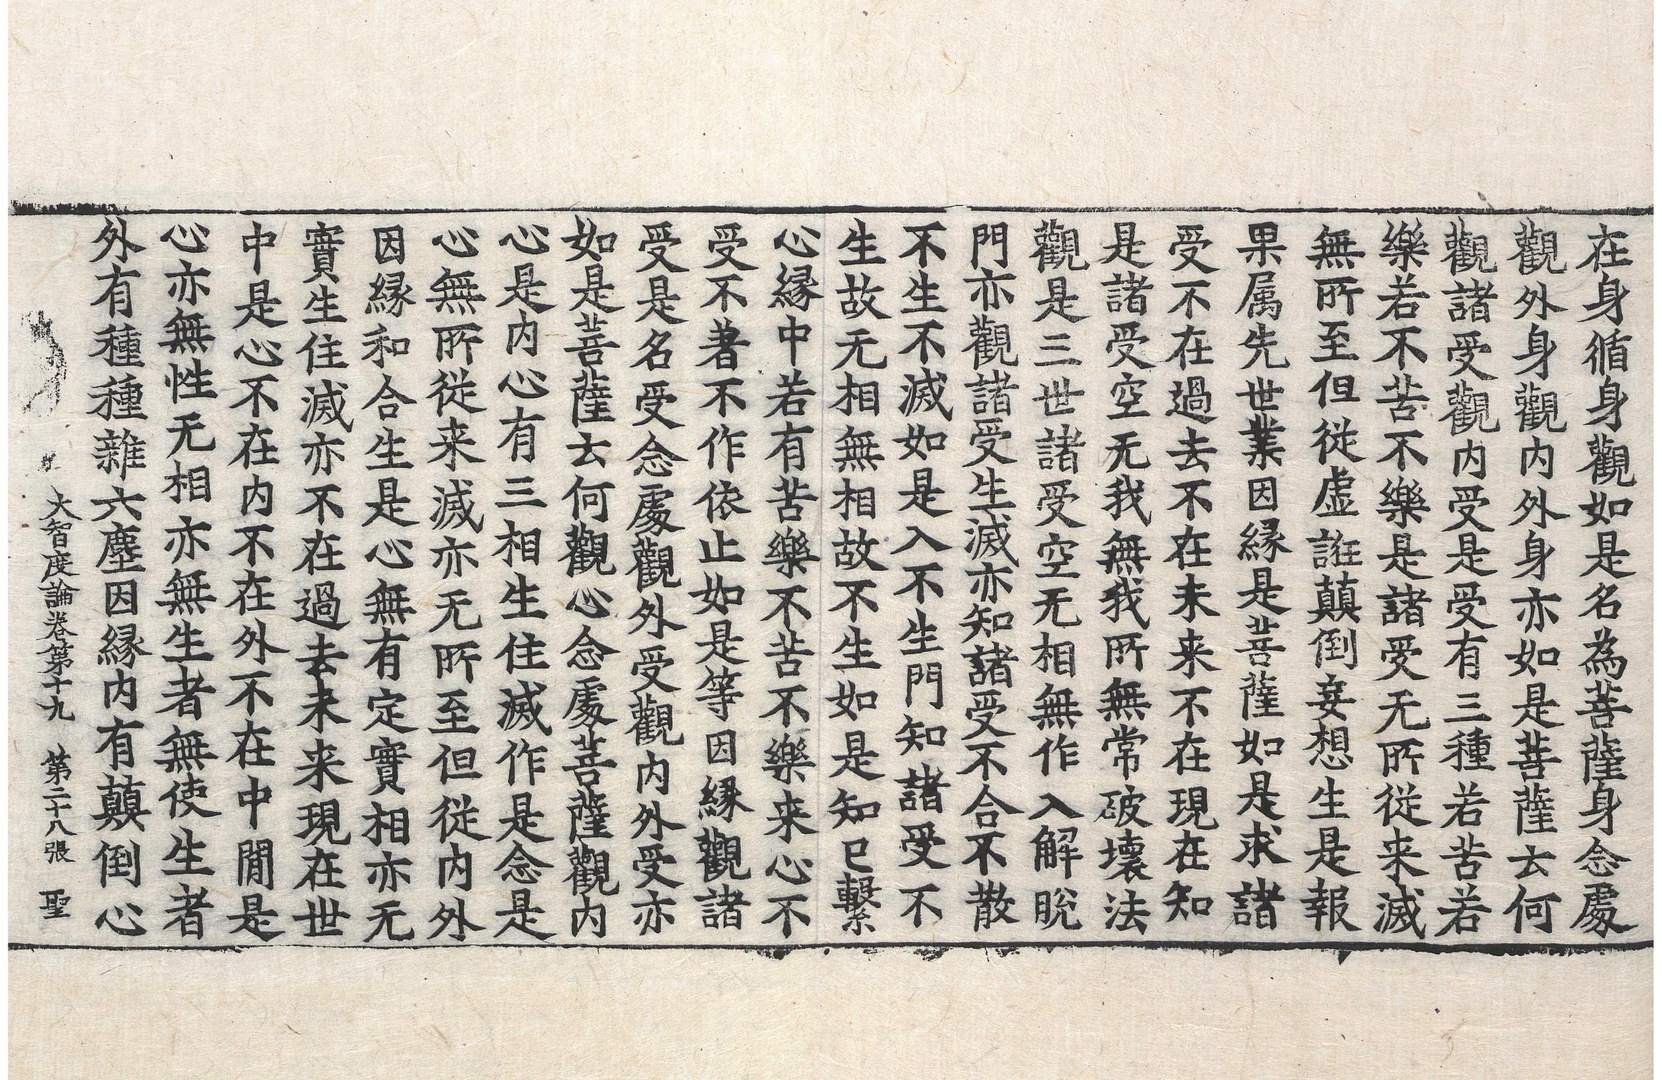 在身循身觀如是名為菩薩身念處
觀外身觀內外身亦如是菩薩云何
觀諸受觀內受是受有三種若苦若
樂若不苦不樂是諸受无所從来滅
無所至但從虛誑顛倒妄想生是報
果属先世業因縁是菩薩如是求諸
受不在過去不在未来不在現在知
是諸受空无我無我所無常破壞法
觀是三世諸受空无相無作入解脫
門亦觀諸受生滅亦知諸受不合不散
不生不滅如是入不生門知諸受不
生故无相無相故不生如是知已繫
心縁中若有苦樂不苦不樂来心不
受不著不作依止如是等因縁觀諸
受是名受念處觀外受觀內外受亦
如是菩薩云何觀心念處菩薩觀內
心是內心有三相生住滅作是念是
心無所從来滅亦无所至但從內外
因縁和合生是心無有定實相亦无
實生住滅亦不在過去未来現在世
中是心不在內不在外不在中間是
心亦無性无相亦無生者無使生者
外有種種雜六塵因縁內有顛倒心
大智度論卷第十九 第二十八張 聖